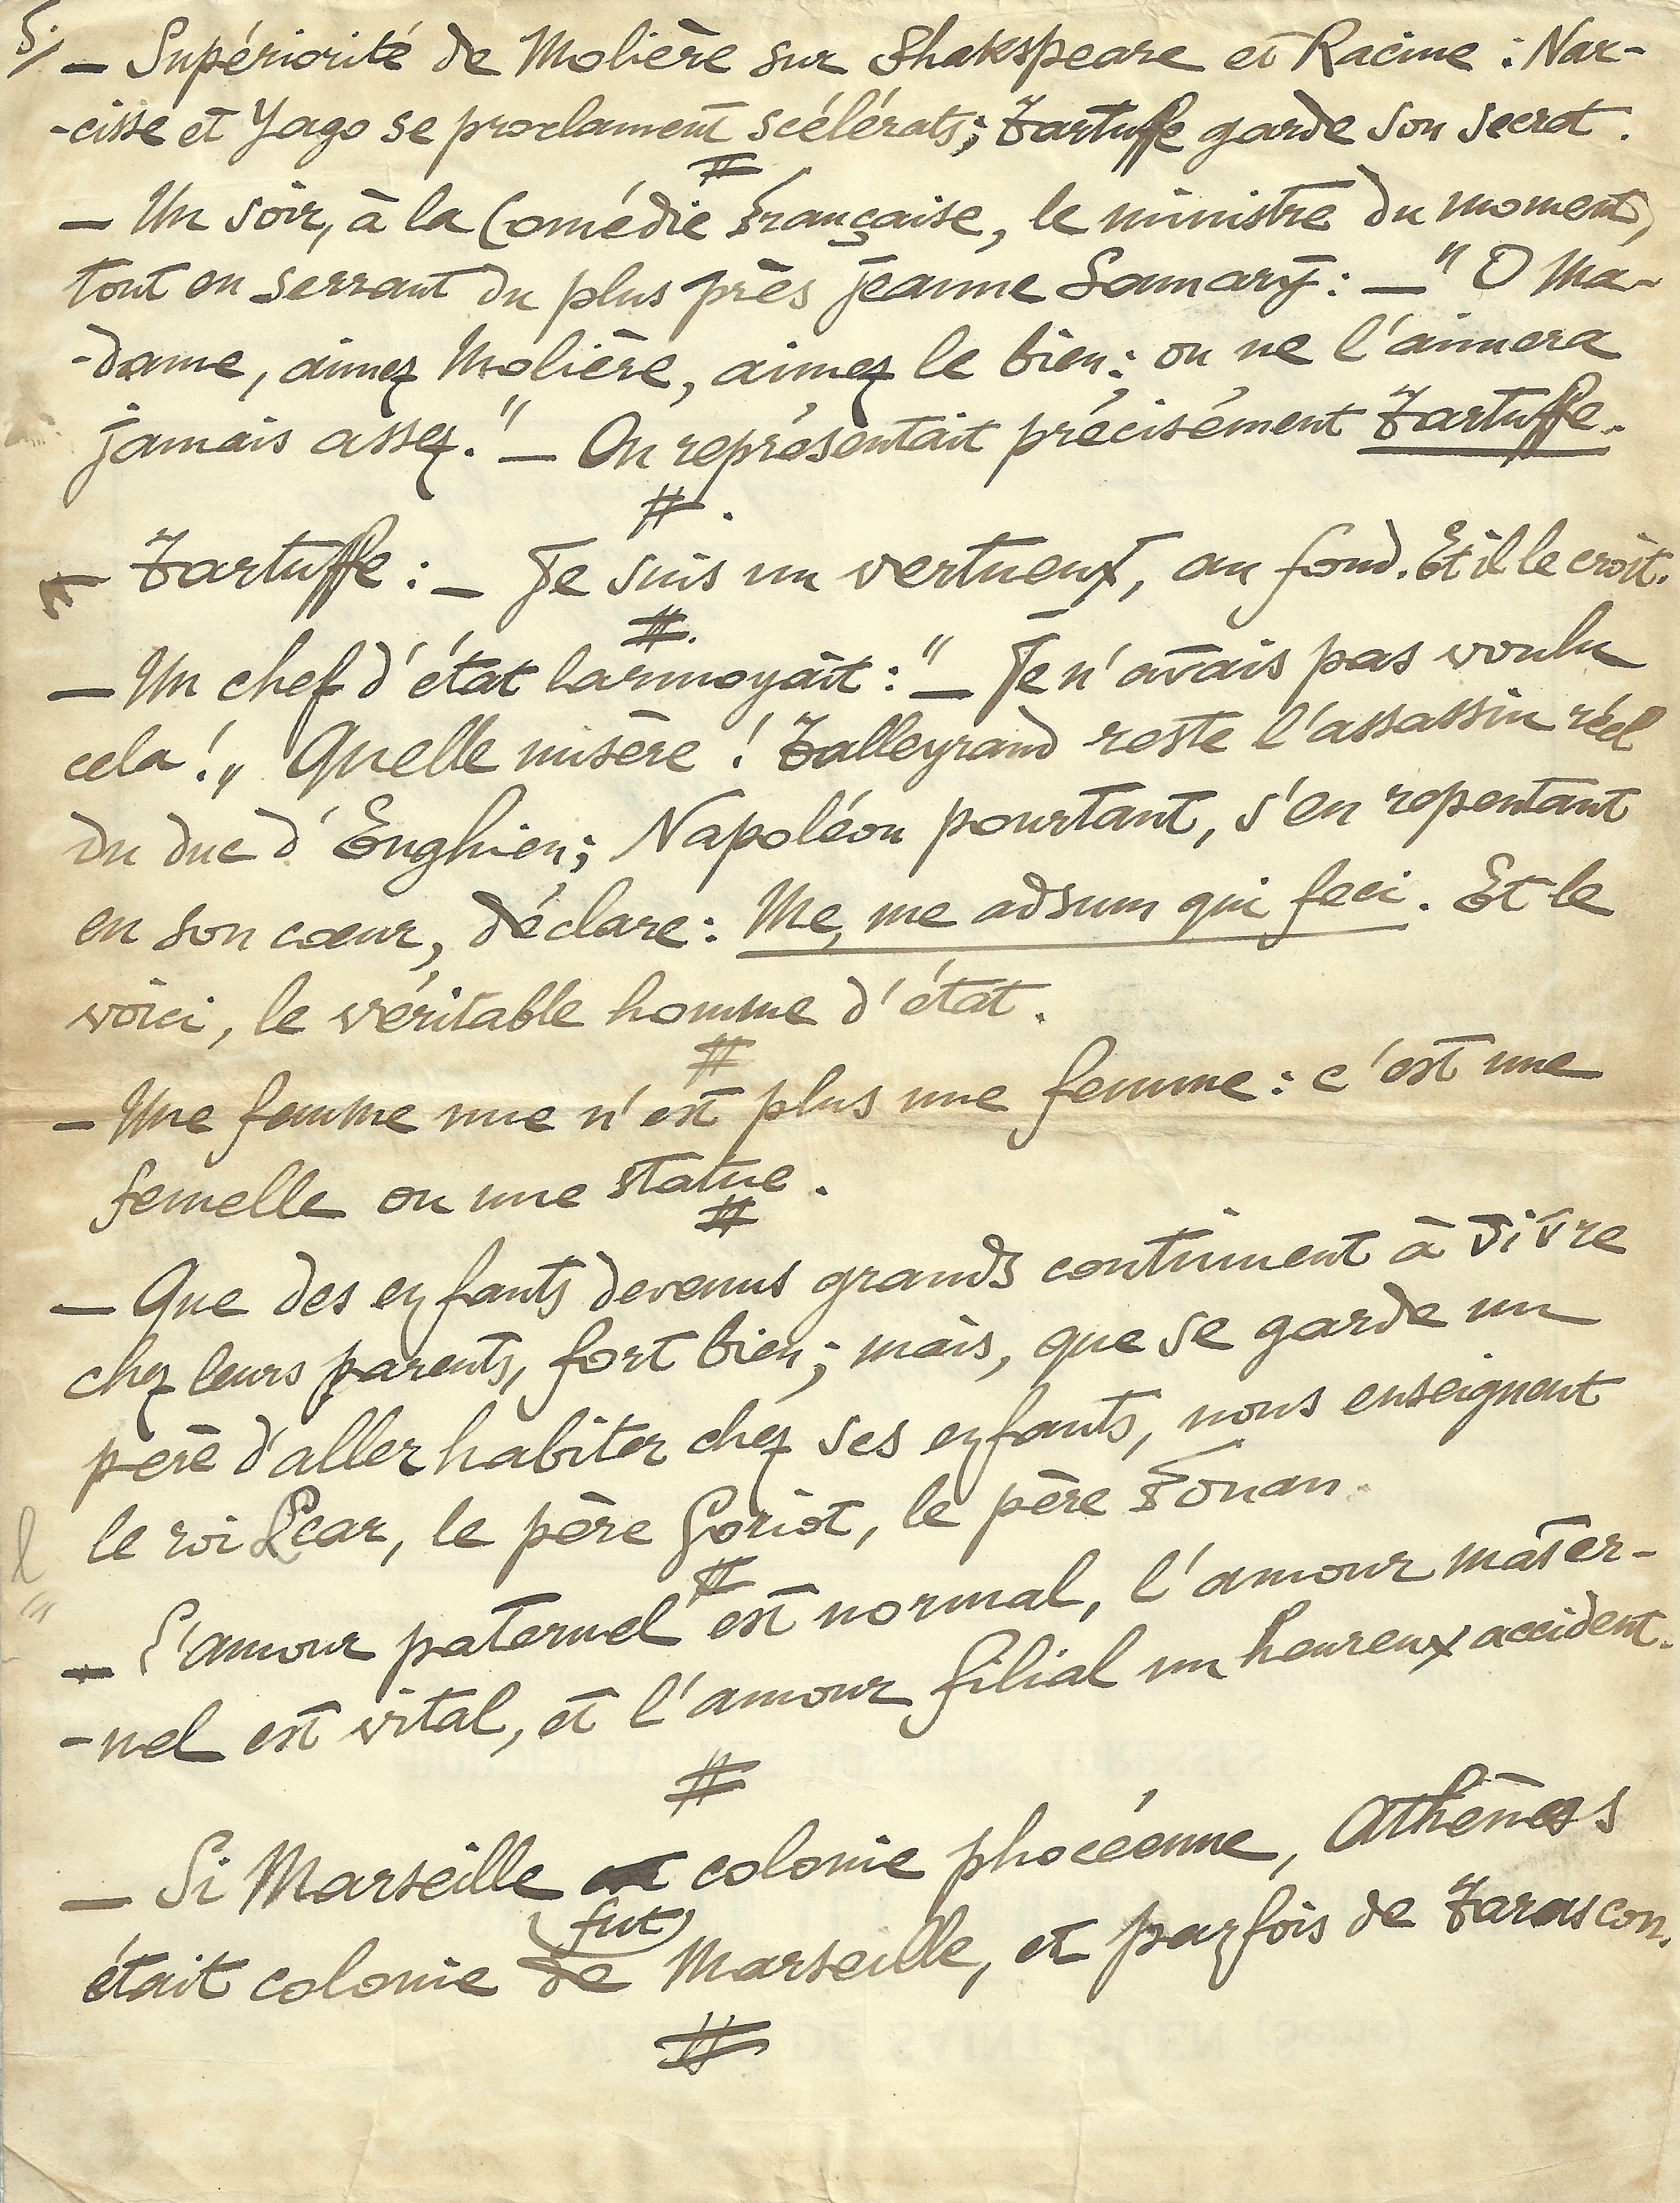 5/ — Supériorité de Molière sur Shakspeare et Racine : Nar-
-cisse et Yago se proclament scélérats ; Tartuffe garde son secret.
#
— Un soir, à la Comédie Française, le ministre du moment,
tout en serrant du plus près Jeanne Samary : — " O Ma-
-dame, aimez Molière, aimez le bien : on ne l'aimera
jamais assez. " — On représentait précisément Tartuffe.
# .
— Tartuffe : — Je suis un vertueux, au fond. Et il le croit.
# .
— Un chef d'état larmoyait : " — Je n'avais pas voulu
cela ! „ Quelle misère ! Talleyrand reste l'assassin réel
du duc d'Enghien ; Napoléon pourtant, s'en repentant
en son cœur, déclare : Me, me adsum qui feci. Et le
voici, le véritable homme d'état.
#
— Une femme nue n'est plus une femme : c'est une
femelle ou une statue.
#
— Que des enfants devenus grands continuent à vivre
chez leurs parents, fort bien ; mais, que se garde un
père d'aller habiter chez ses enfants, nous enseignent
le roi Lear, le père Goriot, le père Fouan.
#
— L'amour paternel est normal, l'amour mater-
-nel est vital, et l'amour filial un heureux accident.
#
— Si Marseille fut colonie phocéenne, Athènes
était colonie de Marseille, et parfois de Tarascon.
#